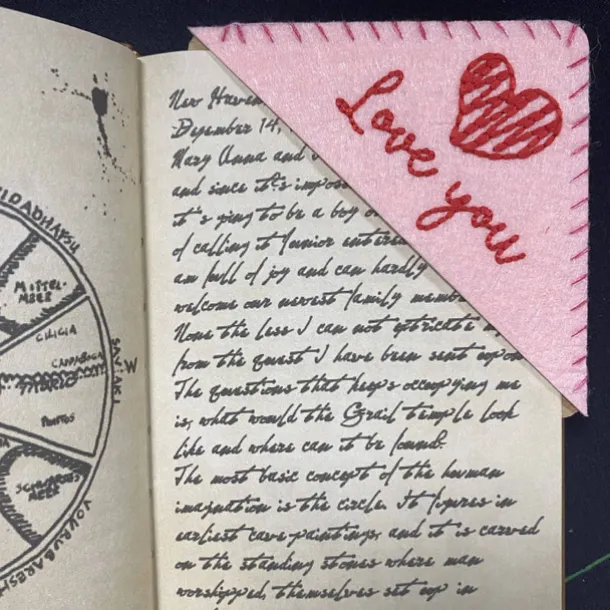 Love you
New Haven
December 14,
Mary Anna and
and since it's impos
it's going to be a boy o
of calling it Junior entire
am full of joy and can hardly
welcome our newest family membe
None the less I can not extricate my
from the quest I have been sent upon
The questions that keeps occupying me
is, what would the Grail temple look
like and where can it be found?
The most basic concept of the human
imagination is the circle. It figures in
earliest cave-paintings, and it is carved
on the standing stones where man
worshipped, themselves set up in
MITTEL-
MEER
CILICIA
CAPPADOCIA
PONTOS
SCHWARZES
MEER
SAVĪAKI
W
VOURUBARESH